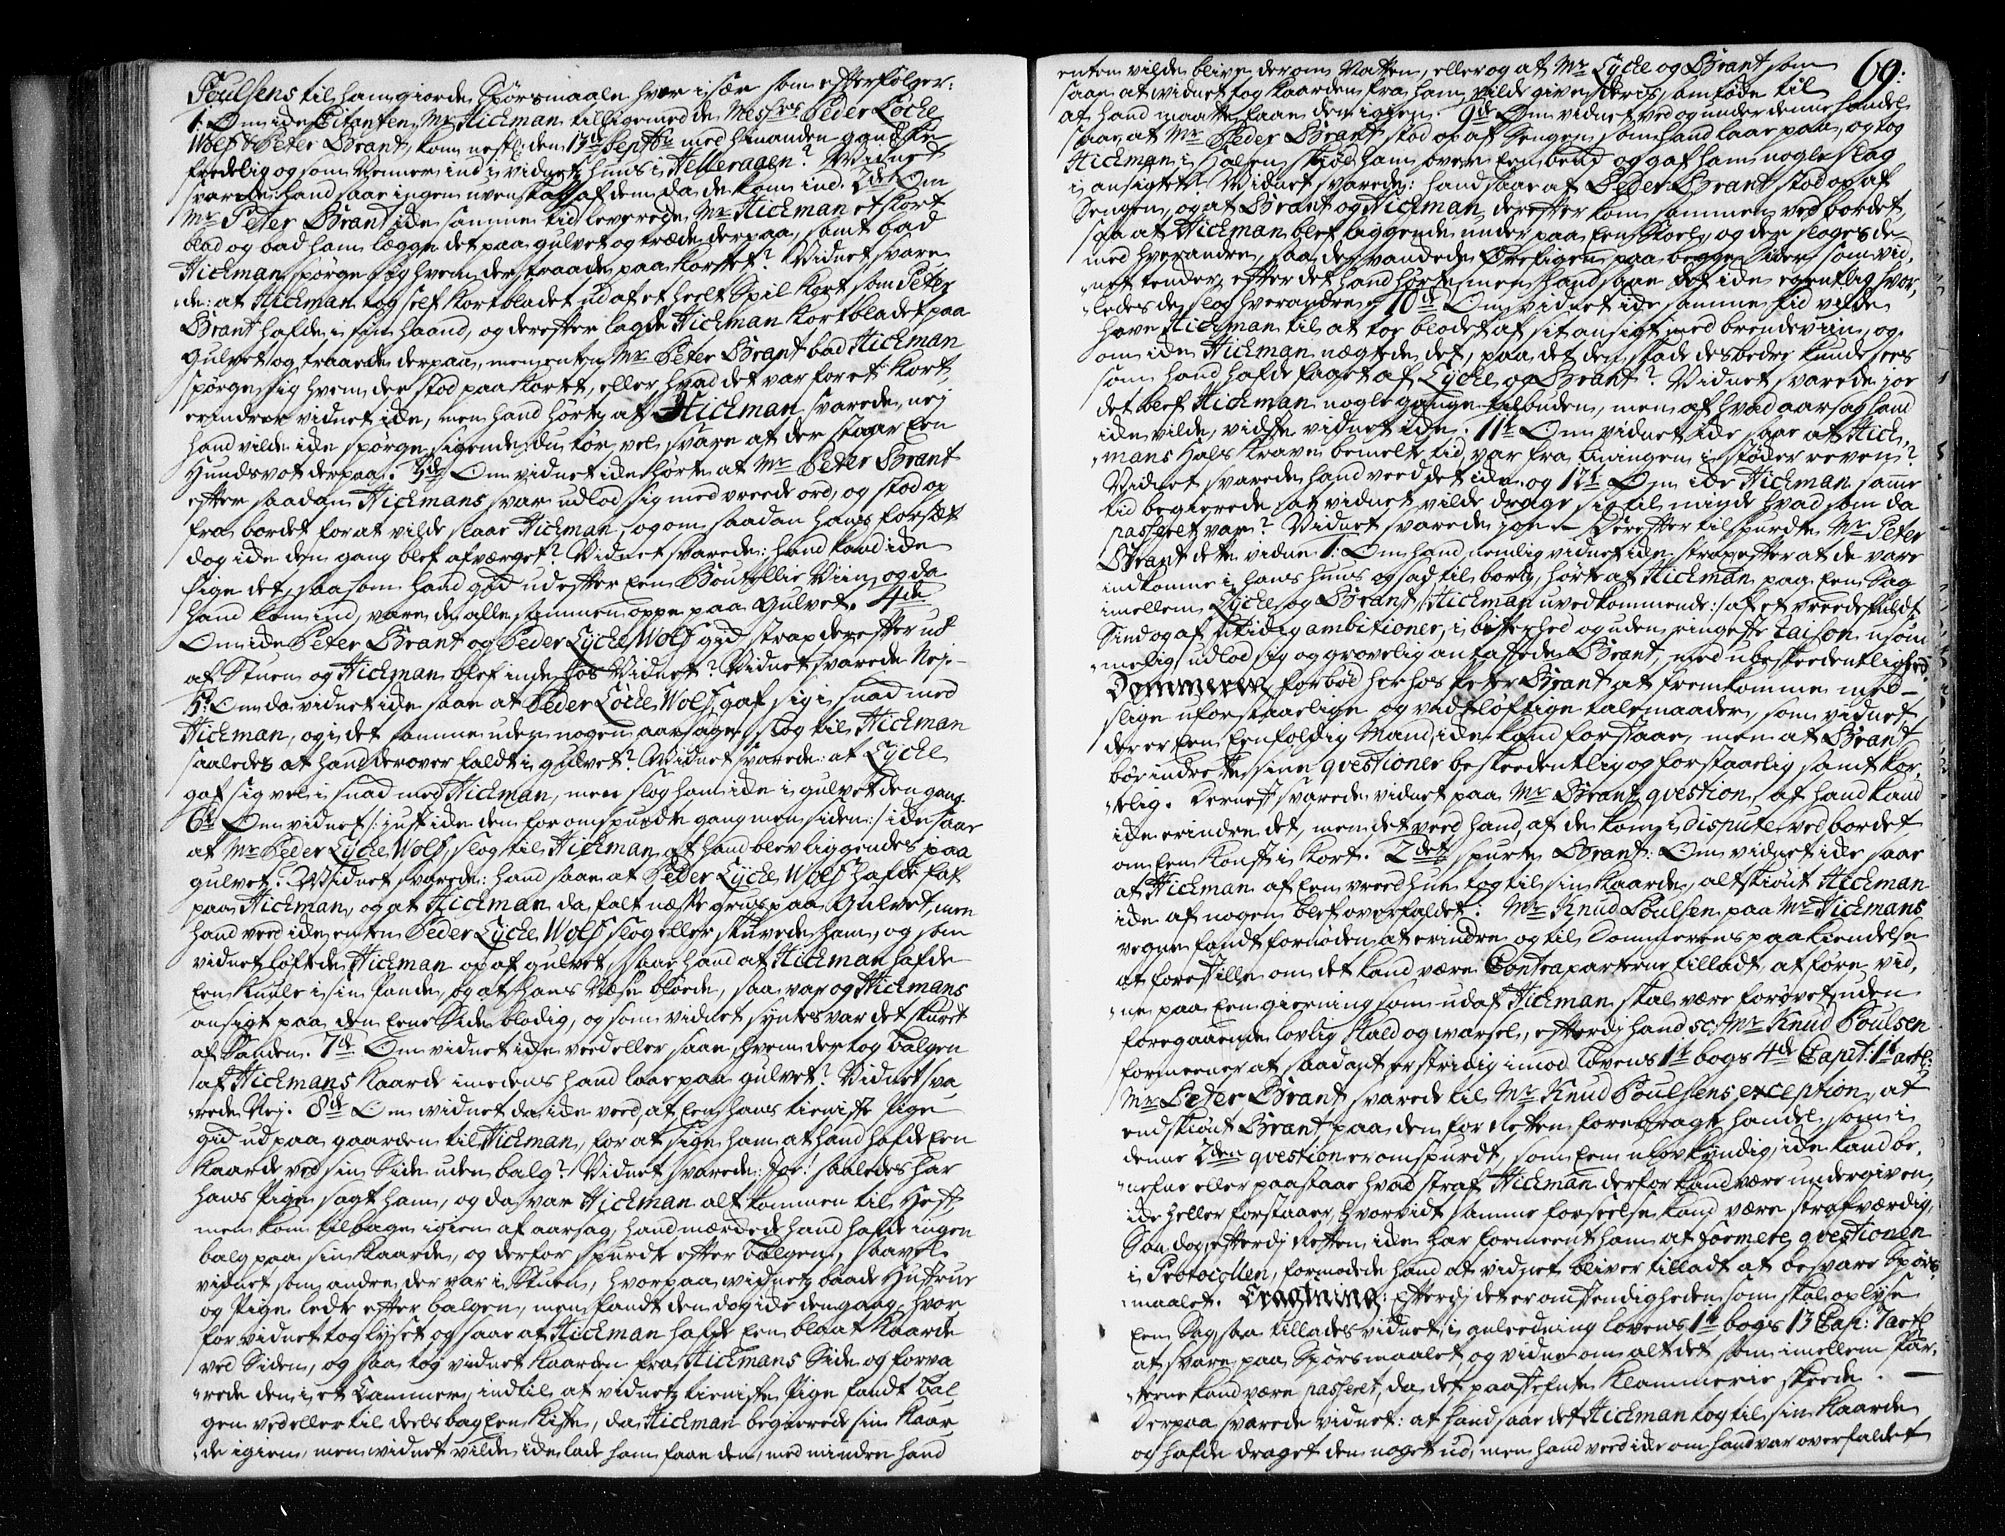 Poulsens til ham giorde Spörsmaale hver i sær som efterfölger:
1. Om ide Citanten Mr Hickman tilligemed de Mess:rs Peder Lycke
Wolf & Peter Brant, kom nestl: den 13de Septbr med hinanden gandske
fredelig og som Venner ind i vidnetz huus i Helleraaen? Vidnet
svarede: hand saae ingen uvenskab af dem da de kom ind. 2de Om
Mr Peter Brant ide samme tid leverede Mr Hickman et Kort
blad og bad ham lægge det paa gulvet og træde derpaa, samt bad
Hickman spörge sig hvem der traade paa Kortet? Vidnet svare
de: at Hickman tog self Kortbladet ud af et heelt Spil Kort som Peter
Brant hafde i sin haand, og derefter lagde Hickman Kortbladet paa
Gulvet og traaede derpaa, men enten Mr Peter Brant bad Hickman
spörge sig hvem der stod paa Kortet, eller hvad det var for et Kort,
erindrer vidnet ide, men hand hörte at Hickman svarede, nej
hand vilde ide spörge, sigende: du tör vel svare at der staar Een
Hundsvot derpaa. 3de Om vidnet ide hörte at Mr Peter Brant
efter saadan Hickmans svar udlod sig med vreede ord, og stod op
fra bordet for at vilde slaae Hickman, og om saadan hans forsæt
dog ide den gang blef afværget? Vidnet svarede: hand kand ide
sige det, saasom hand gik ud efter Een Boutellie Viin, og da
hand kom ind, vare de alle sammen oppe paa Gulvet. 4de
Om ide Peter Brant og Peder Lycke Wolf gik strax derefter ud
af Stuen og Hickman blef inde hos Vidnet? Vidnet svarede Nej.
5t Om da vidnet ide saae at Peder Lycke Wolf, gaf sig i snak med
Hickman, og i det samme uden nogen aarsage, slog til Hickman
saaledes at hand derover faldt i gulvet? Vidnet svarede: at Lycke
gaf sig vel i snak med Hickman, men slog ham ide i gulvet den gang.
6t Om vidnet /: just ide den foromspurdte gang men siden :/ ide saae
at Mr Peder Lycke Wolf, slog til Hickman at hand blev liggendes paa
gulvet? Vidnet svarede: hand saae at Peder Lycke Wolf hafde fat
paa Hickman, og at Hickman da falt næste gruus paa Gulvet, men
hand veed ide enten Peder Lycke Wolf slog eller skuvede ham, og som
vidnet löftede Hickman op af gulvet, saae hand at Hickman hafde
Een Kuule i sin Pande, og at hans Næse blöde, saa var og Hickmans
ansigt paa den Eene Side blodig, og som vidnet syntes var det skuret
af Sanden. 7de Om vidnet ide veed eller saae, hvem der tog balgen
af Hickmans Kaarde imedens hand laae paa gulvet? Vidnet sva
rede Nej. 8de Om vidnet da ide veed, at Een hans tieniste Pige
gik ud paa gaarden til Hickman, for at sige ham at hand hafde Een
Kaarde ved sin Side uden balg? Vidnet svarede: Joe! saaledes har
hans Pige sagt ham, og da var Hickman alt kommen til Heste,
men kom tilbage igien af aarsag, hand mærkede hand hafde ingen
balg paa sin Kaarde, og derfor spurdte efter balgen, saavel
vidnet som andre der var i Stuen, hvorpaa vidnetz baade Hustrue
og Pige ledte efter balgen, men fandt den dog ide den gang, hvor
for vidnet tog lyset og saae at Hickman hafde Een blaat Kaarde
ved Siden, og saa tog vidnet Kaarden fra Hickmans Side og forva
rede den i et Cammer, indtil at vidnetz tieniste Pige fandt bal
gen ved eller til deels bag Een Kiste, da Hickman begierede sin Kaar
de igien, men vidnet vilde ide lade ham faae den, med mindre hand
69:
enten vilde blive der om Natten, eller og at Mr Lycke og Brant som
saae at vidnet tog Kaarden fra ham, vilde give deris samtöke til
at hand maatte faae den igien. 9de Om vidnet ved og under denne handel
saae at Mr Peder Brant stod op af Sengen som hand laae paa, og tog
Hickman i Halsen, sköd ham över Een benk og gaf ham nogle slag
i ansigtet? Vidnet svarede: hand saae at Peder Brant stod op af
Sengen, og at Brant og Hickman derefter kom sammen ved bordet,
saa at Hickman blef liggende under paa Een Stoel, og der sloges de
med hverandre, saa der vankede Örefigen paa begge Sider som vid,
net kender, efter det hand hörte, men hand saae det ide egentlig hvor,
ledes de slog hverandre. 10de Om vidnet ide samme tid vilde
have Hickman til at toe blodet af sit ansigt med brendeviin, og
om ide Hickman nægtede det, paa det den skade des bedre kunde sees
som hand hafde faaet af Lycke og Brant? Vidnet svarede joe
det blef Hickman nogle gange tilbuden, men af hvad aarsag hand
ide vilde, vidste vidnet ide. 11t Om vidnet ide saae at Hick,
mans Hals Krave bemelte tid, var fra liningen i stöder reven?
Vidnet svarede hand veed det ide. og 12t Om ide Hickman samme
tid begierede, at vidnet vilde drage sig til minde hvad som da
passeret var? Vidnet svarede joe. Derefter tilspurdte Mr Peter
Brant dette vidne 1: Om hand nemlig vidnet ide, strax efter at de vare
indkomne i hans huus og sad til bords, hörte at Hickman paa Een Sag
imellem Lycke og Brant /: Hickman uvedkommende :/ af et vreedefuldt
Sind og af utidig ambitioner, i bitterhed og uden ringeste raison usöm
melig udlod sig og grovelig antastede Brant, med ubeskeedentlighed.
Dommeren forböd herhos Peter Brant at fremkomme med
slige uforstaarlige og vidtlöftige talemaader, som vidnet,
der er Een Eenfoldig Mand, ide kand forstaae, men at Brant
bör indrette sine qvestioner beskeedentlig og forstaarlig samt kor,
telig. Dernest svarede vidnet paa Mr Brantz qvestion, at hand kand
ide erindre det, men det veed hand, at de kom i dispute ved bordet
om Een Konst i Kort. 2det spurte Brant: Om vidnet ide saae
at Hickman af Een vreed hue tog til sin Kaarde, altskiönt Hickman
ide af nogen blef overfaldet? Mr Knud Poulsen paa Mr Hickmans
vegne fandt fornöden at erindre og til Dommerens paakiendelse
at forestille om det kand være Contraparterne tilladt at före vid,
ne paa Een gierning som ud af Hickman skal være forövet, uden
foregaaende lovlig Kald og varsel, efterdj hand sc: Mr Knud Poulsen
formeener at saadant er stridig imod Lovens 1t bogs 4de Capit: 1t artl:
Mr Peter Brant svarede til Mr Knud Poulsens exception, at
endskiönt Brant paa den for Retten forebragte handel, som i
denne 2den qvestion er omspurdt, som Een ulovkyndig, ide kand be,
nefne eller paastaae hvad straf Hickman derfor kand være undergiven,
ide heller forstaaer, hvorvidt samme forseelse kand være strafværdig,
Saa dog, efterdj Retten ide har formeent ham at formere qvestionen
i Protocollen, formodede hand at vidnet bliver tilladt at besvare Spörs
maalet. Eragtning: Efterdj det er omstendigheden som skal oplyse
Een Sag, saa tillades vidnet i guleedning Lovens 1t bogs 13 Cap: 7 artl
at svare paa Spörsmaalet, og vidne om alt det som imellem Par,
terne kand være passeret, da det paastefnte Klammerie skeede.
Derpaa svarede vidnet: at hand saae det Hickman tog til sin Kaarde
og hafde draget den noget ud, men hand veed ide om hand var overfaldet